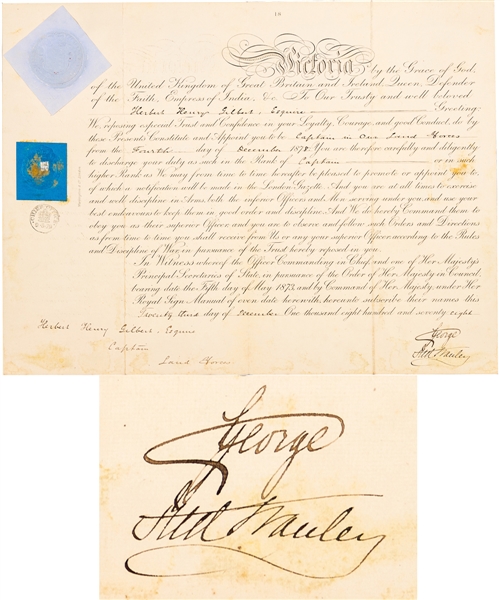 Victoria by the Grace of God,
of the United Kingdom of Great Britain and Ireland Queen, Defender
of the Faith, Empress of India, &c. To Our Trusty and well beloved
Herbert Henry Gilbert Esquire Greeting:
We, reposing especial Trust and Confidence in your Loyalty, Courage, and good Conduct, do by
these Presents Constitute and Appoint you to be Captain in Our Land Forces
from the Fourth day of December 1878. You are therefore carefully and diligently
to discharge your duty as such in the Rank of Captain or in such
higher Rank as We may from time to time hereafter be pleased to promote or appoint you to,
of which a notification will be made in the London Gazette. And you are at all times to exercise
and well discipline in Arms, both the inferior Officers and Men serving under you, and use your
best endeavours to keep them in good order and discipline. And We do hereby Command them to
obey you as their superior Officer, and you to observe and follow such Orders and Directions
as from time to time you shall receive from Us or any your superior Officer, according to the Rules
and Discipline of War, in pursuance of the Trust hereby reposed in you.
In Witness whereof the Officer Commanding in Chief and one of Her Majesty's
Principal Secretaries of State, in pursuance of the Order of Her Majesty in Council,
bearing date the Fifth day of May 1873, and by Command of Her Majesty, under Her
Royal Sign Manual of even date herewith, hereunto subscribe their names this
Twenty third day of December One thousand eight hundred and seventy eight
Herbert Henry Gilbert Esquire
Captain
Land Forces
George
Fred Stanley
George
Fred Stanley